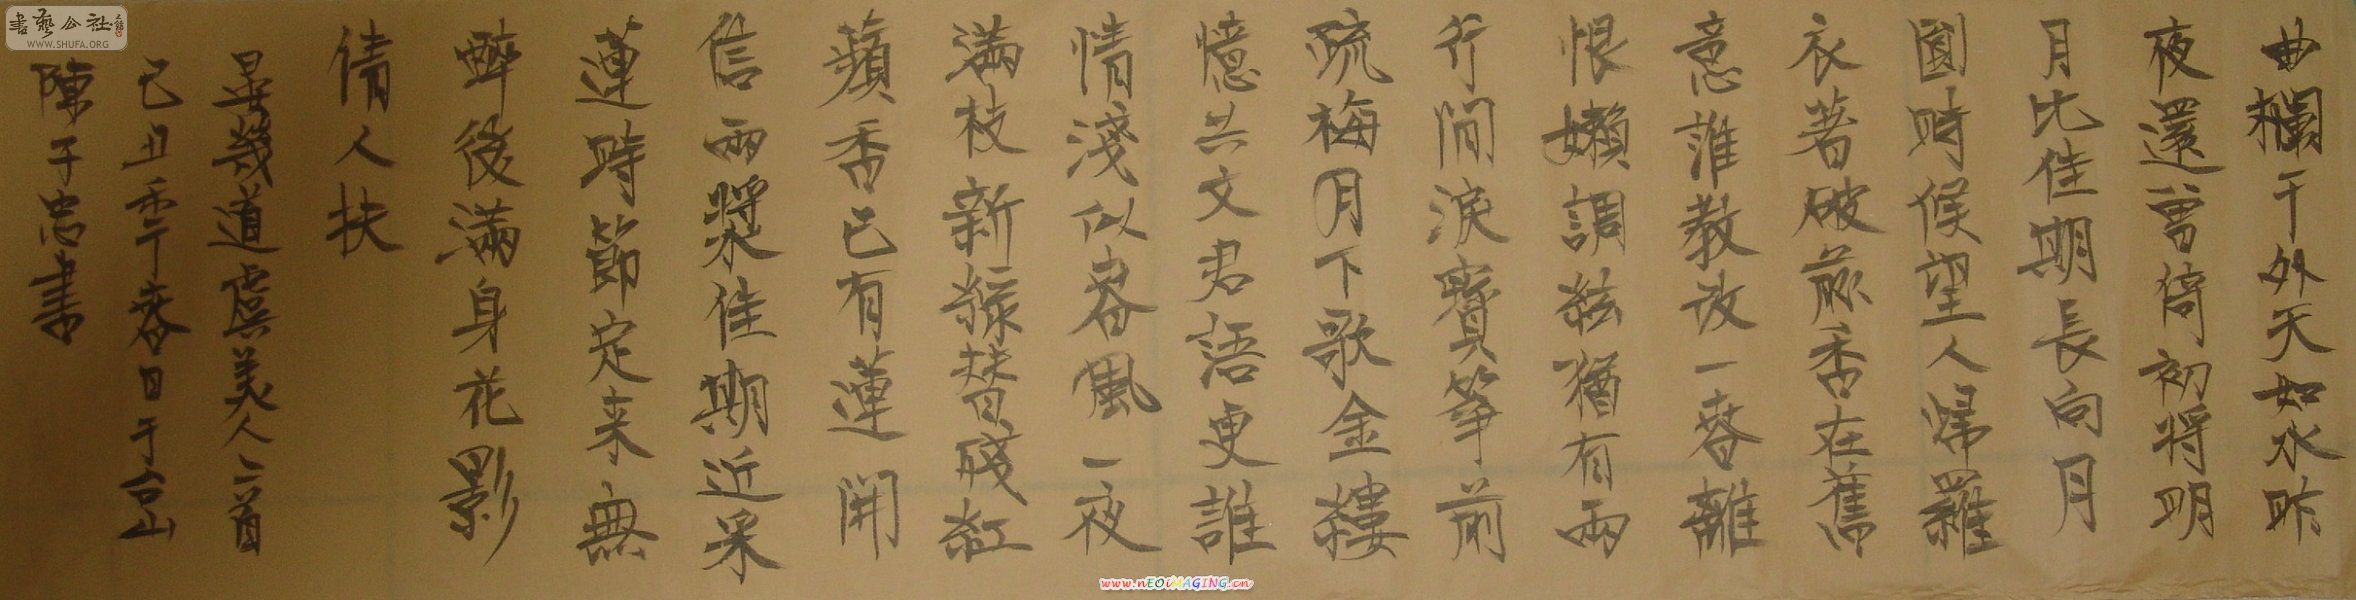 曲欄干外天如水昨
夜還曾倚初將明
月比佳期長向月
圓時候望人歸羅
衣著破前香在舊
意誰教改一春離
恨嬾調絃猶有兩
行閒淚寶箏前
疏梅月下歌金縷
憶共文君語更誰
情淺似春風一夜
滿枝新綠替殘紅
蘋香已有蓮開
信兩槳佳期近采
蓮時節定来無
醉後滿身花影
倩人扶
晏幾道虞美人二首
己丑季春日于台山
陳子忠書
書藝公社
WWW.SHUFA.ORG
www.nEOiMAGING.cn